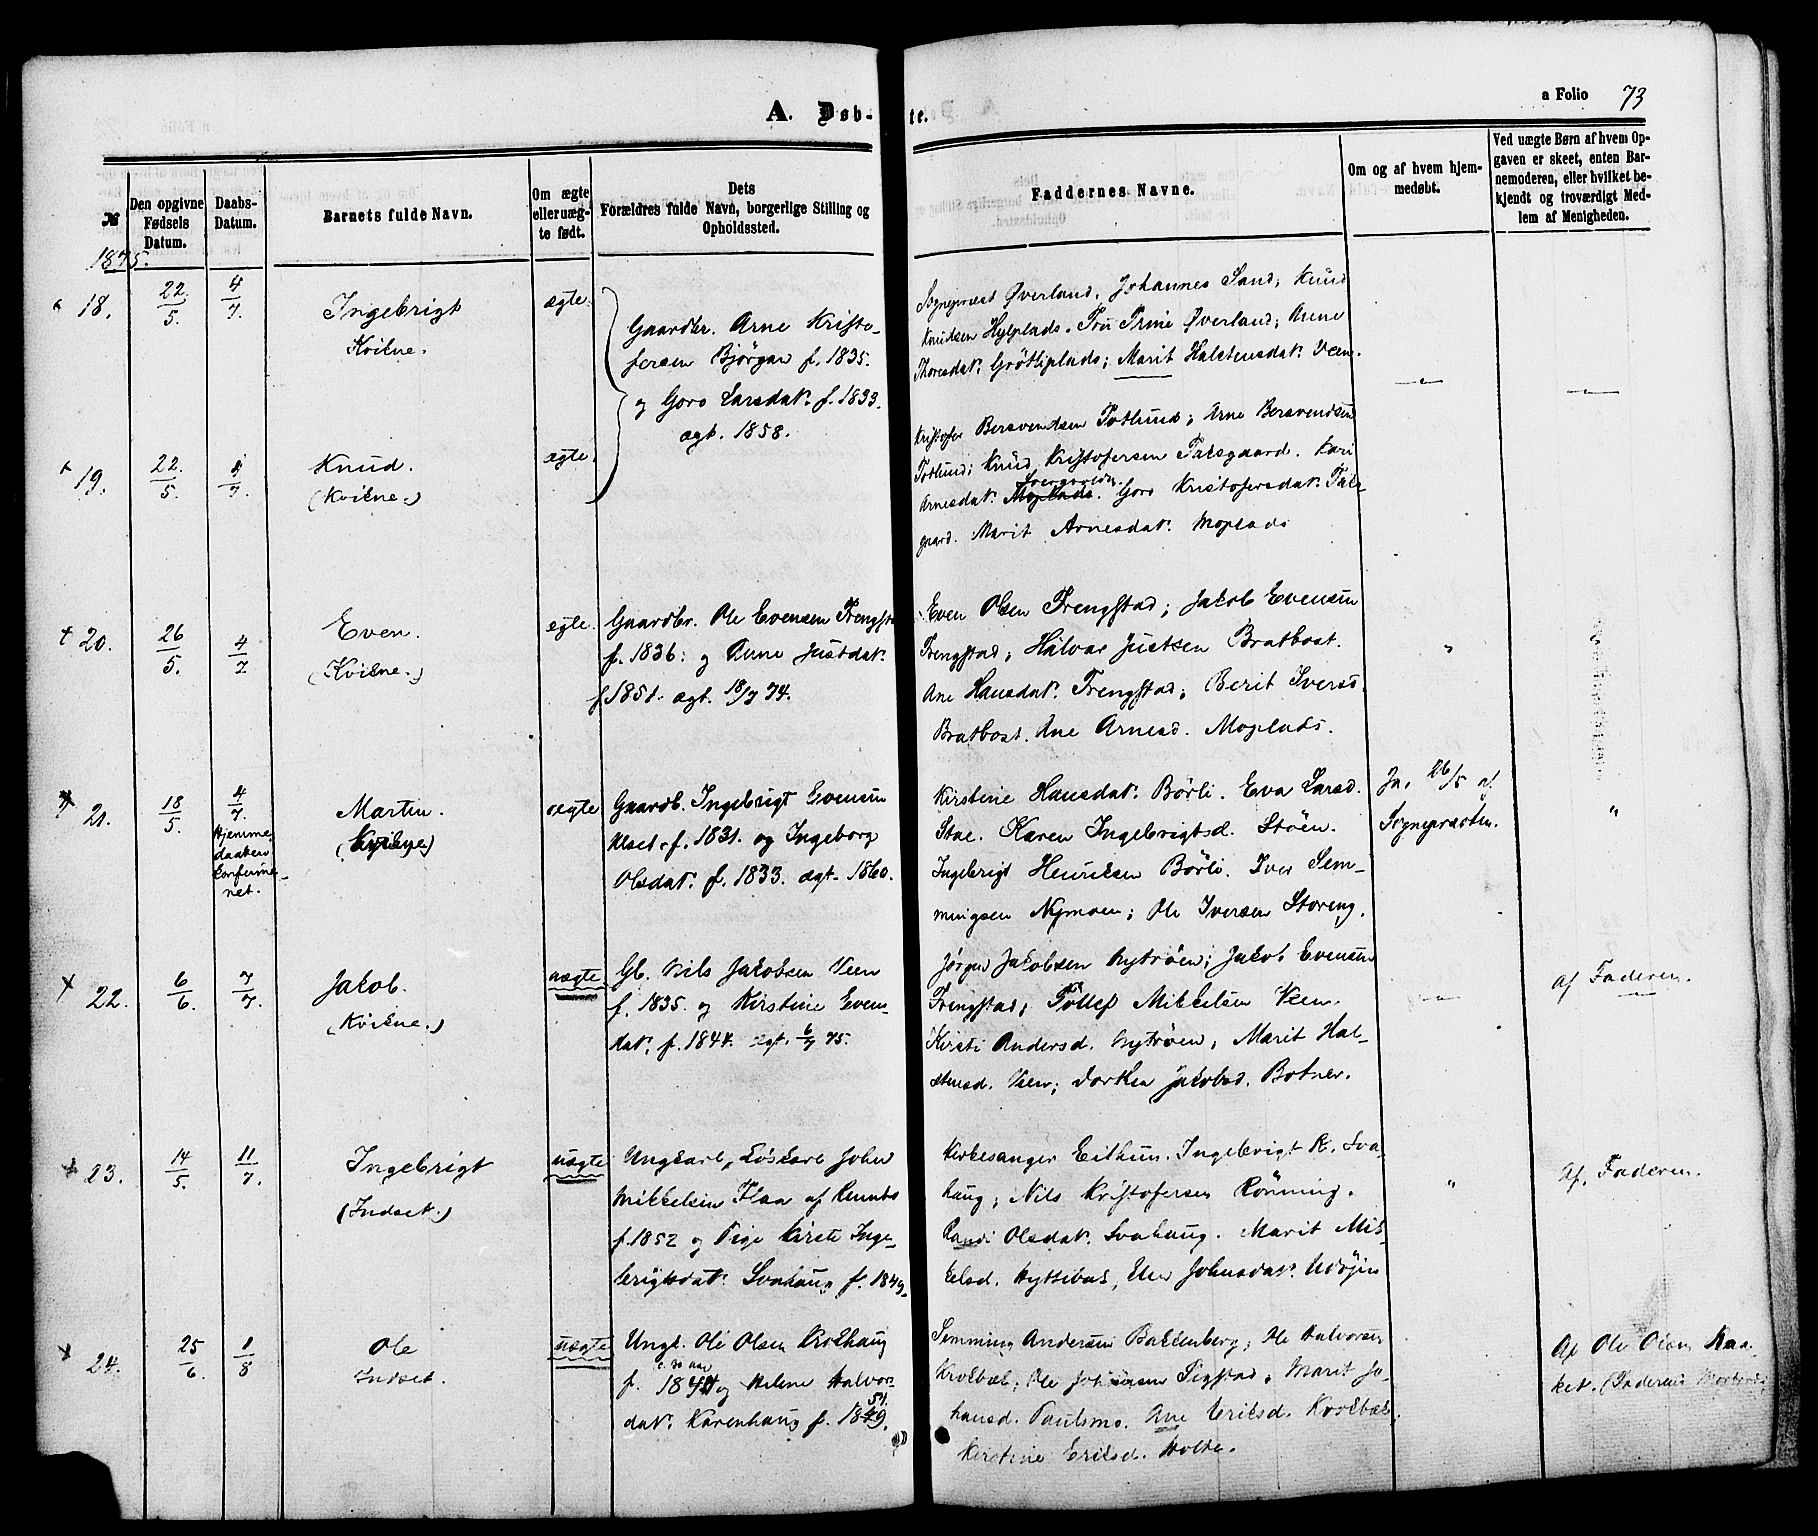 A. Døb-
te.
a Folio 73
№
Den opgivne Fødsels Datum.
Daabs-Datum.
Barnets fulde Navn.
Om ægte eller uæg-te født.
Dets Forældres fulde Navn, borgerlige Stilling og Opholdssted.
Faddernes Navne.
Om og af hvem hjem-medøbt.
Ved uægte Børn af hvem Op-gaven er skeet, enten Bar-nemoderen, eller hvilket be-kjendt og troværdigt Med-lem af Menigheden.
1875.
18.
22/5.
4/7.
Ingebrigt
Kvikne.
ægte.
Gaardbr. Arne Kristo-
fersen Bjørgan f. 1835.
og Goro Larsdatr. f. 1833.
ægt. 1858.
Sognepræst Øverland, Johannes Sand, Knud
Knudsen Hylplads. Fru Trine Øverland; Anne
Thoresdatr. Grötliplads; Marit Halstensdatr. Veen.
19.
22/5.
4/7.
Knud.
(Kvikne.)
ægte.
Kristofer Bersvendsen Totlund; Arne Bersvendsen
Totlund; Knud Kristofersen Falsgaard. Kari
Arnesdatr. Moplads. Goro Kristofersdatr. Fals-
gaard. Marit Arnesdatr. Moplads
20.
26/5.
4/7
Even.
(Kvikne.)
ægte.
Gaardbr. Ole Evensen Frengst
f. 1836: og Anne Justdatr.
f 1851. ægt. 18/7 74.
Even Olsen Frengstad; Jakob Evensen
Frengstad; Halvor Justsen Bratbost.
Ane Hansdatr. Frengstad; Berit Iversd.
Bratbost. Ane Arnesd. Moplads.
"
21.
18/5.
4/7.
Hjemme-
daaben
konfirme-
net.
Martin.
(Kvikne)
ægte
Gaardb. Ingebrigt Evensen
Ulset. f. 1831. og Ingeborg
Olsdatr. f. 1833. ægt. 1860.
Kirstine Hansdatr. Børli. Eva Larsd.
Stae. Karen Ingebrigtsd. Støen.
Ingebrigt Henriksen Børli. Iver Sem-
mingsen Nymoen; Ole Iversen Storeng.
Ja, 26/5 af
Sognepræsten.
"
22.
6/6
7/7.
Jakob.
(Kvikne.)
uægte
Gb. Nils Jakobsen Veen
f. 1835. og Kirstine Evens-
datr. f. 1844. ægt. 6/7 75.
Jørgen Jakobsen Nytrøen; Jakob Evensen
Frengstad; Tollef Mikkelsen Veen.
Kirsti Andersd. Nytrøen; Marit Hal-
stensd. Veen; Dorthea Jakobsd. Botner.
af Faderen.
23.
14/5.
11/7.
Ingebrigt
(Indset.)
uægte
Ungkarl, Løskarl John
Mikkelsen Flaa af Rennebo
f. 1852 og Pige Kirsti Inge-
brigtsdatr. Svahaug f. 1849.
Kirkesanger Eithun. Ingebrigt R. Sva-
haug; Nils Kristofersen Rønning.
Randi Olsdatr. Svahaug. Marit Mik-
kelsd. Hyttebak, Elen Johnsdatr. Udøjen
"
Af. Faderen.
24.
25/6.
1/8
Ole
Indset.
uægte
Ungk. Ole Olsen Krokhaug
f. 1844 og Helene Halvor-
51.
datr. Karenhaug f. 1849.
Semming Andersen Bakkenberg; Ole Halvorsen
Krokbæk; Ole Johnsen Sigstad, Marit Jo-
hansd. Paulsmo. Ane Eriksd. Krokbæk
Kirstine Eriksd. Holte.
Af Ole Olsen Raa-
ket. (Faderens